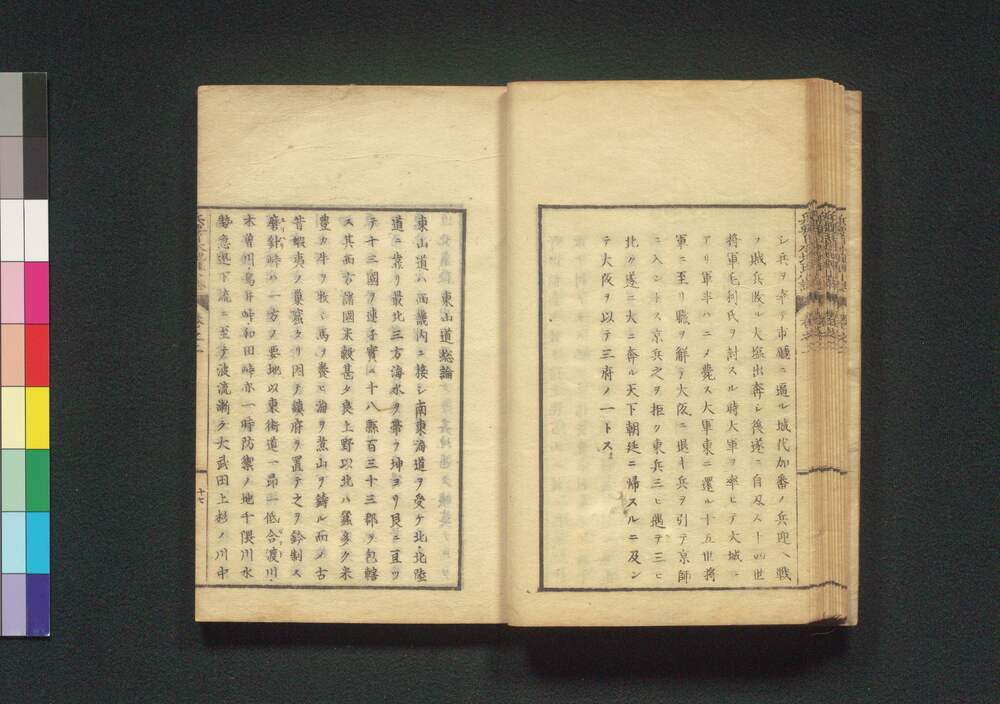 シ兵ヲ率テ市廳ニ逼ル城代加番ノ兵迎ヘ戦
フ賊兵敗ル大塩出奔シ後遂ニ自刄ス十四世
将軍毛利氏ヲ討スル時大軍ヲ率ヒテ大城ニ
アリ軍半ハニメ薨ス大軍東ニ還ル十五世将
軍ニ至リ職ヲ解テ大阪ニ退キ兵ヲ引テ京師
ニ入ントス京兵之ヲ拒ク東兵三ヒ遇テ三ヒ
北ク遂ニ大ニ奔ル天下朝廷ニ帰スルニ及ン
テ大阪ヲ以テ三府ノ一トス
東山道総論
東山道ハ西畿内ニ接シ南東海道ヲ受ケ北北陸
道ニ靠リ最北三方海水ヲ帯ヲ坤ヨリ艮ニ亘ツ
テ十三國ヲ連子實ニ十八縣百三十三郡ヲ包轄
ス其西方諸國米穀甚タ良上野以北ハ蠶多ク米
豊カ牛ヲ牧シ馬ヲ養ヒ海ヲ煮山ヲ鋳ル而メ古
昔蝦夷ノ巣窟タリ因テ鎮府ヲ置テ之ヲ鈴制ス
磨針峠ハ一方ノ要地以東街道一昻一低合渡川
木曽川鳥井峠和田峠亦一時防禦ノ地千隈川水
勢急遽下流ニ至テ波流漸ク大武田上杉ノ川中
十七